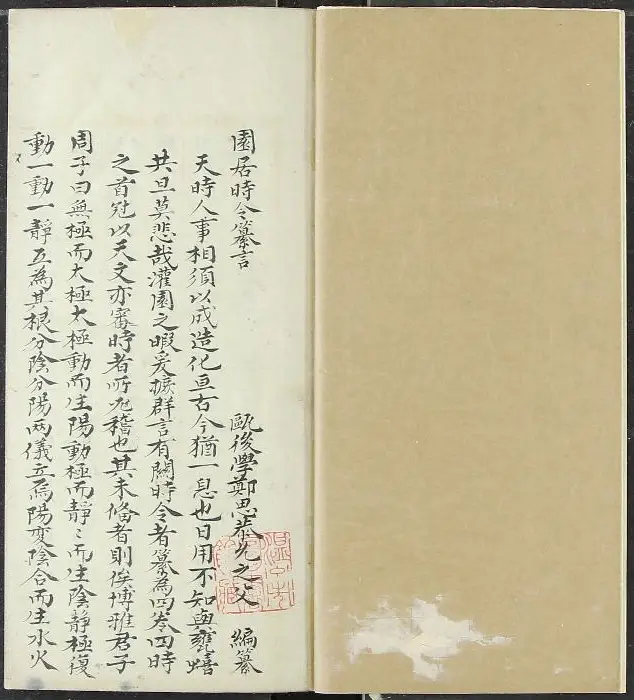 園居時令纂言
甌後學鄭思恭允之父 編纂
天時人事相須以成造化亘古今猶一息也日用不知與甕蟢
共旦莫悲哉灌園之暇爰摭群言有關時令者纂為四卷四時
之首冠以天文亦審時者所先稽也其未備者則俟博雅君子
周子曰無極而太極太極動而生陽動極而靜〻而生陰靜極復
動一動一靜互為其根分陰分陽兩儀立焉陽變陰合而生水火